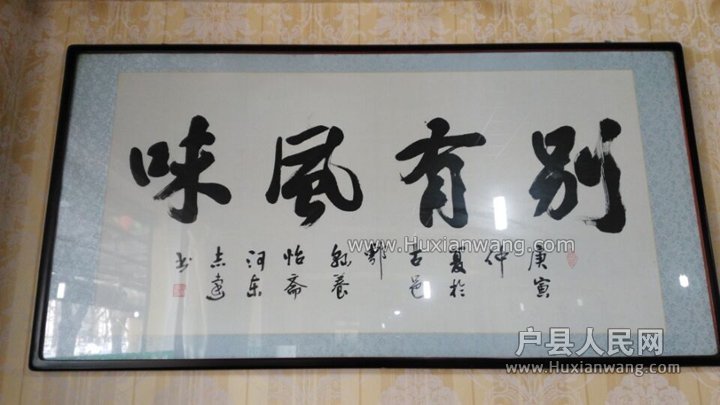 别有風味
庚寅
仲
夏於
古邑
鄠
養
怡斋
河东
志遠
书
www.Huxianwang.com
户县人民网
www.Huxianwang.com